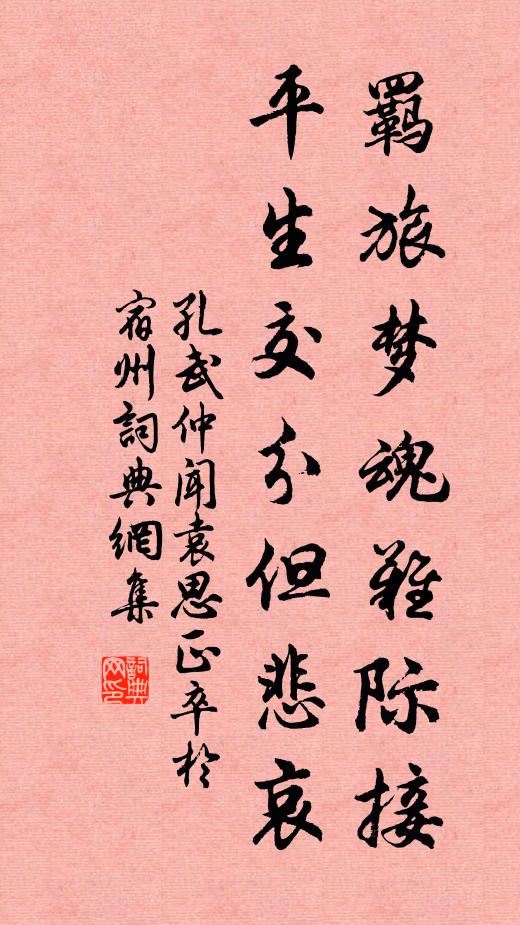 羇旅梦魂难际接
平生交分但悲哀
孔武仲闻袁思正卒於
宿州詞典網集
詞典網印